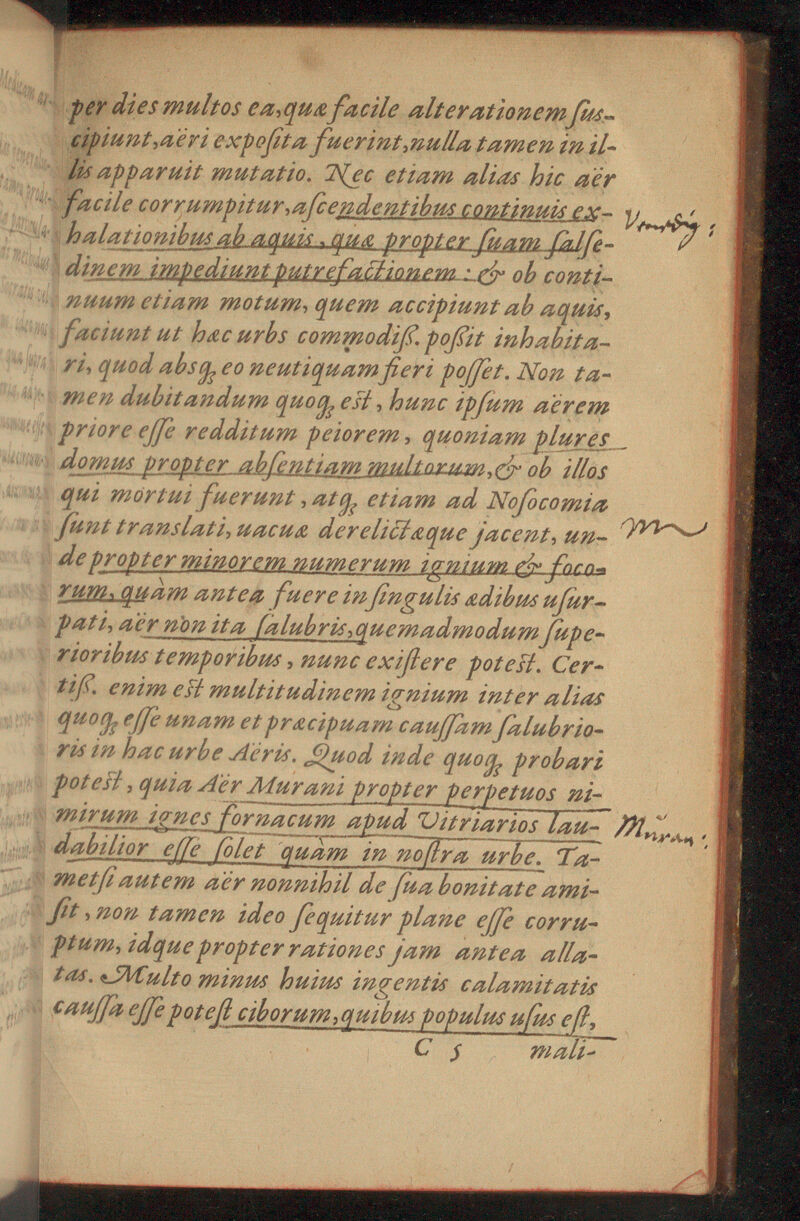 per dies multos ea,quæ facile alterationem ſus-
cipiunt,aëri expoſita fuerint,nulla tamen in il-
lis apparuit mutatio. Nec etiam alias hic aër
facile corrumpitur,aſcendentibus continuis ex-
halationibus ab aquis, quæ propter ſuam ſalſe-
dinem impediunt putrefactionem : & ob conti-
nuum etiam motum, quem accipiunt ab aquis,
faciunt ut hæc urbs commodiſſ. poſſit inhabita-
ri, quod absq; eo neutiquam fieri poſſet. Non ta-
men dubitandum quoq; est, hunc ipſum aërem
priore eſſe redditum peiorem, quoniam plures
domus propter abſentiam multorum,& ob illos
qui mortui fuerunt, atq; etiam ad Noſocomia
ſunt translati, uacuæ derelictæque jacent, un-
de propter minorem numerum ignium & foco-
rum, quàm antea fuere in ſingulis ædibus uſur-
pati, aër non ita ſalubris,quemadmodum ſupe-
rioribus temporibus, nunc exiſtere potest. Cer-
tiſſ. enim est multitudinem ignium inter alias
quoq; eſſe unam et præcipuam cauſſam ſalubrio-
ris in hac urbe Aëris. Quod inde quoq; probari
potest, quia Aër Murani propter perpetuos ni-
mirum ignes fornacum apud Vitriarios lau-
dabilior eſſe ſolet quàm in noſtra urbe. Ta-
metſi autem aër nonnihil de ſua bonitate ami-
ſit, non tamen ideo ſequitur plane eſſe corru-
ptum, idque propter rationes jam antea alla-
tas. Multo minus huius ingentis calamitatis
cauſſa eſſe poteſt ciborum,quibus populus uſus eſt,
C 5 mali-